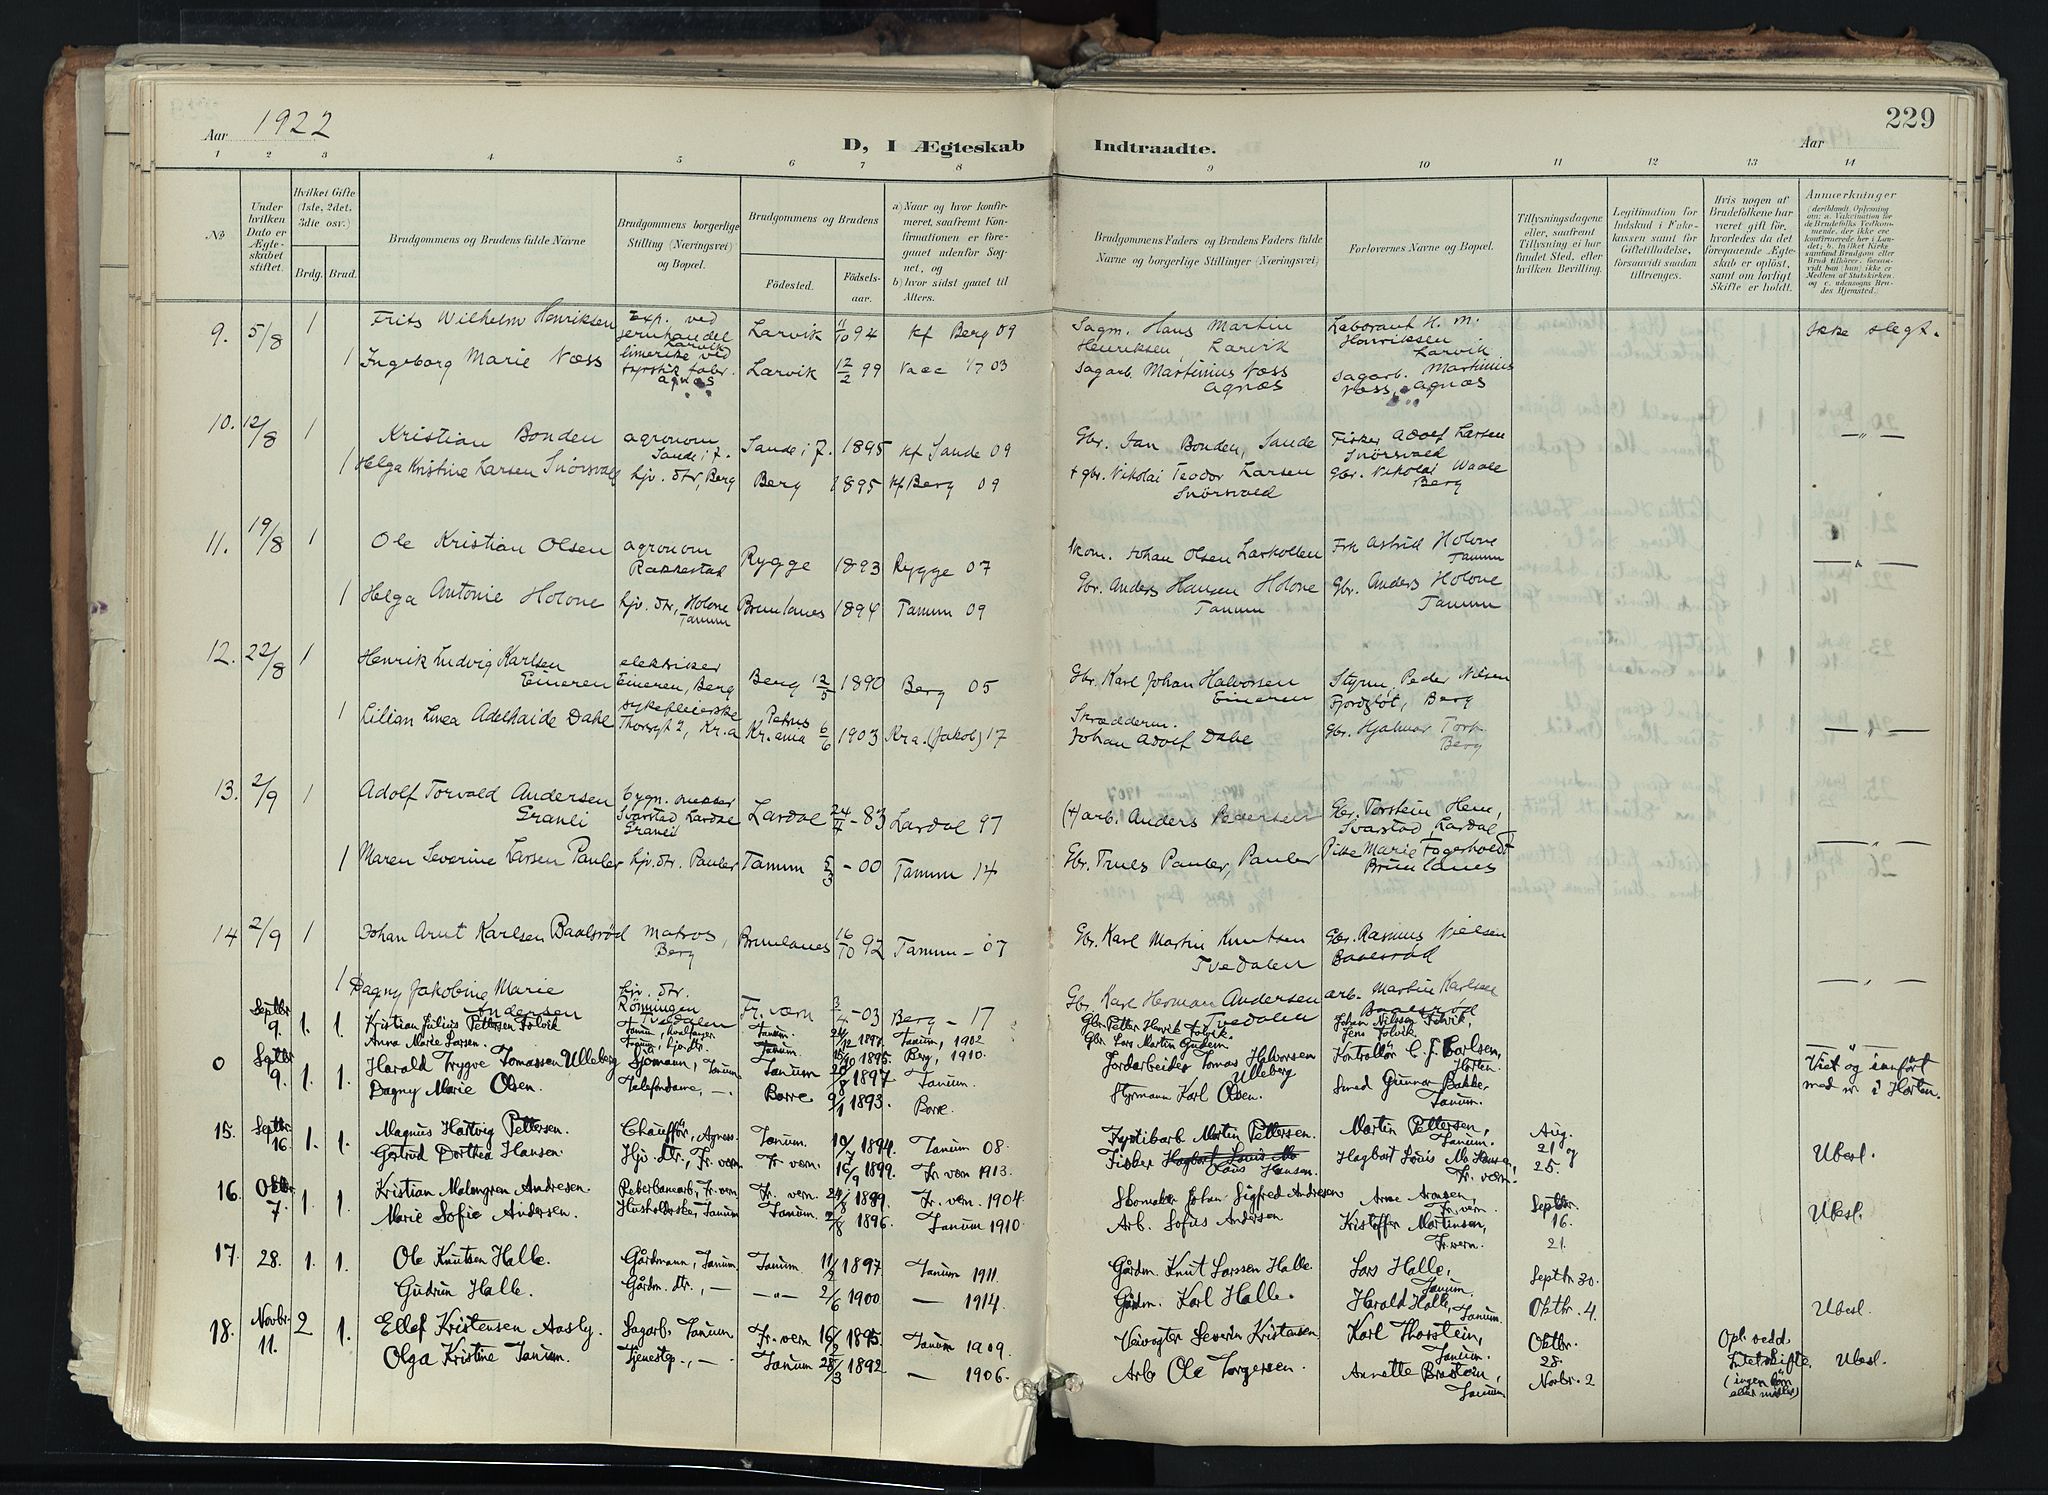 Aar 1922
D, I Ægteskab Indtraadte.
Aar
229
1 2 3 4 5 6 7 8 9 10 11 12 13 14
No
Under hvilken Dato er Ægteskabet stiftet.
Hvilket Gifte (1ste, 2det, 3die osv.)
Brdg. Brud.
Brudgommens og Brudens fulde Navne
Brudgommens borgerlige Stilling (Næringsvei) og Bopæl.
Brudgommens og Brudens
Fødested. Fødselsaar.
a) Naar og hvor konfirmeret, saafremt Konfirmationen er foregaaet udenfor Sognet, og
b) hvor sidst gaaet til Alters.
Brudgommens Faders og Brudens Faders fulde Navne og borgerlige Stillinger (Næringsvei)
Forlovernes Navne og Bopæl.
Tillysningsdagene eller, saafremt Tillysning ei har fundet Sted, efter hvilken Bevilling.
Legitimation for Indskud i Enkekassen samt for Giftetilladelse, forsaavidt saadan tiltrænges.
Hvis nogen af Brudefolkene har været gift før, hvorledes da det foregaaende Ægteskab er opløst, samt om lovligt Skifte er holdt.
Anmærkninger
9. 5/8 1 Frits Wilhelm Henriksen Exp. ved jernhandel Larvik Larvik 11/10 94 kf Berg 09 Sagm. Hans Martin Henriksen, Larvik Laborant H. M. Henriksen Larvik ikke slegt.
1 Ingeborg Marie Næss ved fabr. Agnæs Larvik 12/2 99 Vacc 1/7 03 Sagarb. Martinius Næss Agnæs Sagarb. Martinius Næss, Agnæs
10. 12/8 1 Kristian Bonden agronom Sande i J. Sande i J. 1895 kf Sande 09 Gbr. Jan Bonden, Sande Fisker Adolf Larsen Snörsvald — " —
1 Helga Kristine Larsen Snörsvald hjv. dtr, Berg Berg 1895 kf Berg 09 + gbr. Nikolai Teodor Larsen Snörsvald Gbr. Nikolai Waale Berg
11. 19/8 1 Ole Kristian Olsen agronom Rakkestad Rygge 1893 Rygge 07 Johan Olsen Larkollen Frk Astrid Holone Tanum — " —
1 Helga Antonie Holone hjv. dtr, Holone Tanum Brunlanes 1894 Tanum 09 Gbr. Anders Hansen Holone Tanum Gbr. Anders Holone Tanum
12. 22/8 1 Henrik Ludvig Karlsen Eineren elektriker Eineren, Berg Berg 12/5 1890 Berg 05 Gbr. Karl Johan Halvorsen Eineren Styrm. Peder Nilsen Fjordgløt, Berg
1 Lilian Linea Adelhaide Dahe sykepleierske Thorsgt 2, Kr.a Petrus Kr.ania 6/6 1903 Kra. (Jakob) 17 Skrædderm. Johan Adolf Dahe Gbr. Hjalmar Torp Berg — " —
13. 2/9 1 Adolf Torvald Andersen Granli bygn. snekker Svarstad Lardal Granli Lardal 24/4 - 83 Lardal 97 (+) arb. Anders Pedersen Gbr. Torstein Hem, Svarstad, Lardal
1 Maren Severine Larsen Pauler hjv. dtr. Pauler Tanum 5/3 - 00 Tanum 14 Gbr. Truls Pauler, Pauler Pike Marie Fagerholdt Brunlanes — " —
14 2/9 1 Johan Arnt Karlsen Baalsrød matros, Berg Brunlanes 16/10 92 Tanum - 07 Gbr. Karl Martin Knutsen Tvedalen Gbr. Rasmus Nielsen Baalsrød
1 Dagny Jakobine Marie Andersen hjv. dtr. Rönningen Tvedalen Fr. værn 3/4 - 03 Berg - 17 Gbr. Karl Herman Andersen Tvedalen arb. Martin Karlsen Baalsrød — " —
Septbr 9. 1. 1. Kristian Julius Pettersen Tolvik Tanum, hvalfanger Tanum. 24/12 189 Tanum, 1902 Gbr. Petter Henrik Tolvik. Johan Nilssen Tolvik,
Anna Marie Larsen. Tanum, hjv. dtr. Tanum. 15/10 1895. Berg, 1910. Gbr. Lars Martin Gudem. Jens Tolvik — " —
0 Septbr 9. 1. 1. Harald Trygve Tomassen Ulleberg Sjömann, Tanum Tanum 20/8 1897 Tanum. Jordarbeider Tomas Halvorsen Ulleberg Kontrollör C. J. Carlsen, Horten. Viet og innført med nr. i Horten.
Dagny Marie Olsen. Telefondame, —. Borre 9/1 1893. Borre. Styrmann Karl Olsen. Smed Gunnar Bakke Tanum.
15. Septbr 16. 1. 1. Magnus Hartvig Pettersen. Chauffør, Agnes. Tanum. 19/7 1894. Tanum 08. Fyrstikarb Martin Pettersen. Martin Pettersen, Tanum. Aug. 21 og 25. Ubesl.
Gertrud Dorthea Hansen. Hjv. dtr., Fr. vern Fr. vern. 16/9 1899. Fr. vern 1913. Fisker Hagbart Louis Ma Hans Hansen. Hagbart Louis Ma Hansen, Fr. vern.
16. Oktbr 7. 1. 1. Kristian Malmgren Andresen. Reberbanearb, Fr. vern Fr. vern. 24/8 1899. Fr. vern. 1904. Skomaker Johan Sigfred Andresen Arne Aronsen, Fr. vern. Septbr. 16. 21. Ubesl.
Marie Sofie Andersen. Husholderske, Tanum Tanum. 2/8 1896. Tanum 1910. Arb. Sofus Andersen Kristoffer Martinsen, Fr. vern.
17. 28. 1. 1. Ole Knutsen Halle. Gårdmann, Tanum. Tanum 11/2 1897 Tanum 1911. Gårdm. Knut Larssen Halle. Lars Halle, Tanum. Septbr 30.
Gudrun Halle. Gårdm. dtr., — —"— 2/6 1900 — 1914. Gårdm. Karl Halle. Harald Halle, Tanum. Oktbr. 4 Ubesl.
18. Novbr. 11. 2 1. Ellef Kristensen Aasly. Sagarb. Tanum. Fr. vern 16/2 1895. Tanum 1909. Veivogter Severin Kristensen. Karl Thorstein, Tanum. Oktbr. 28. Opl. vedd. Intet skifte. (ingen børn eller midler) Ubesl.
Olga Kristine Tanum. Tjenestep., —. Tanum 28/3 1892 — 1906. Arb Ole Torgersen. Annette Brastein, Tanum Novbr. 2